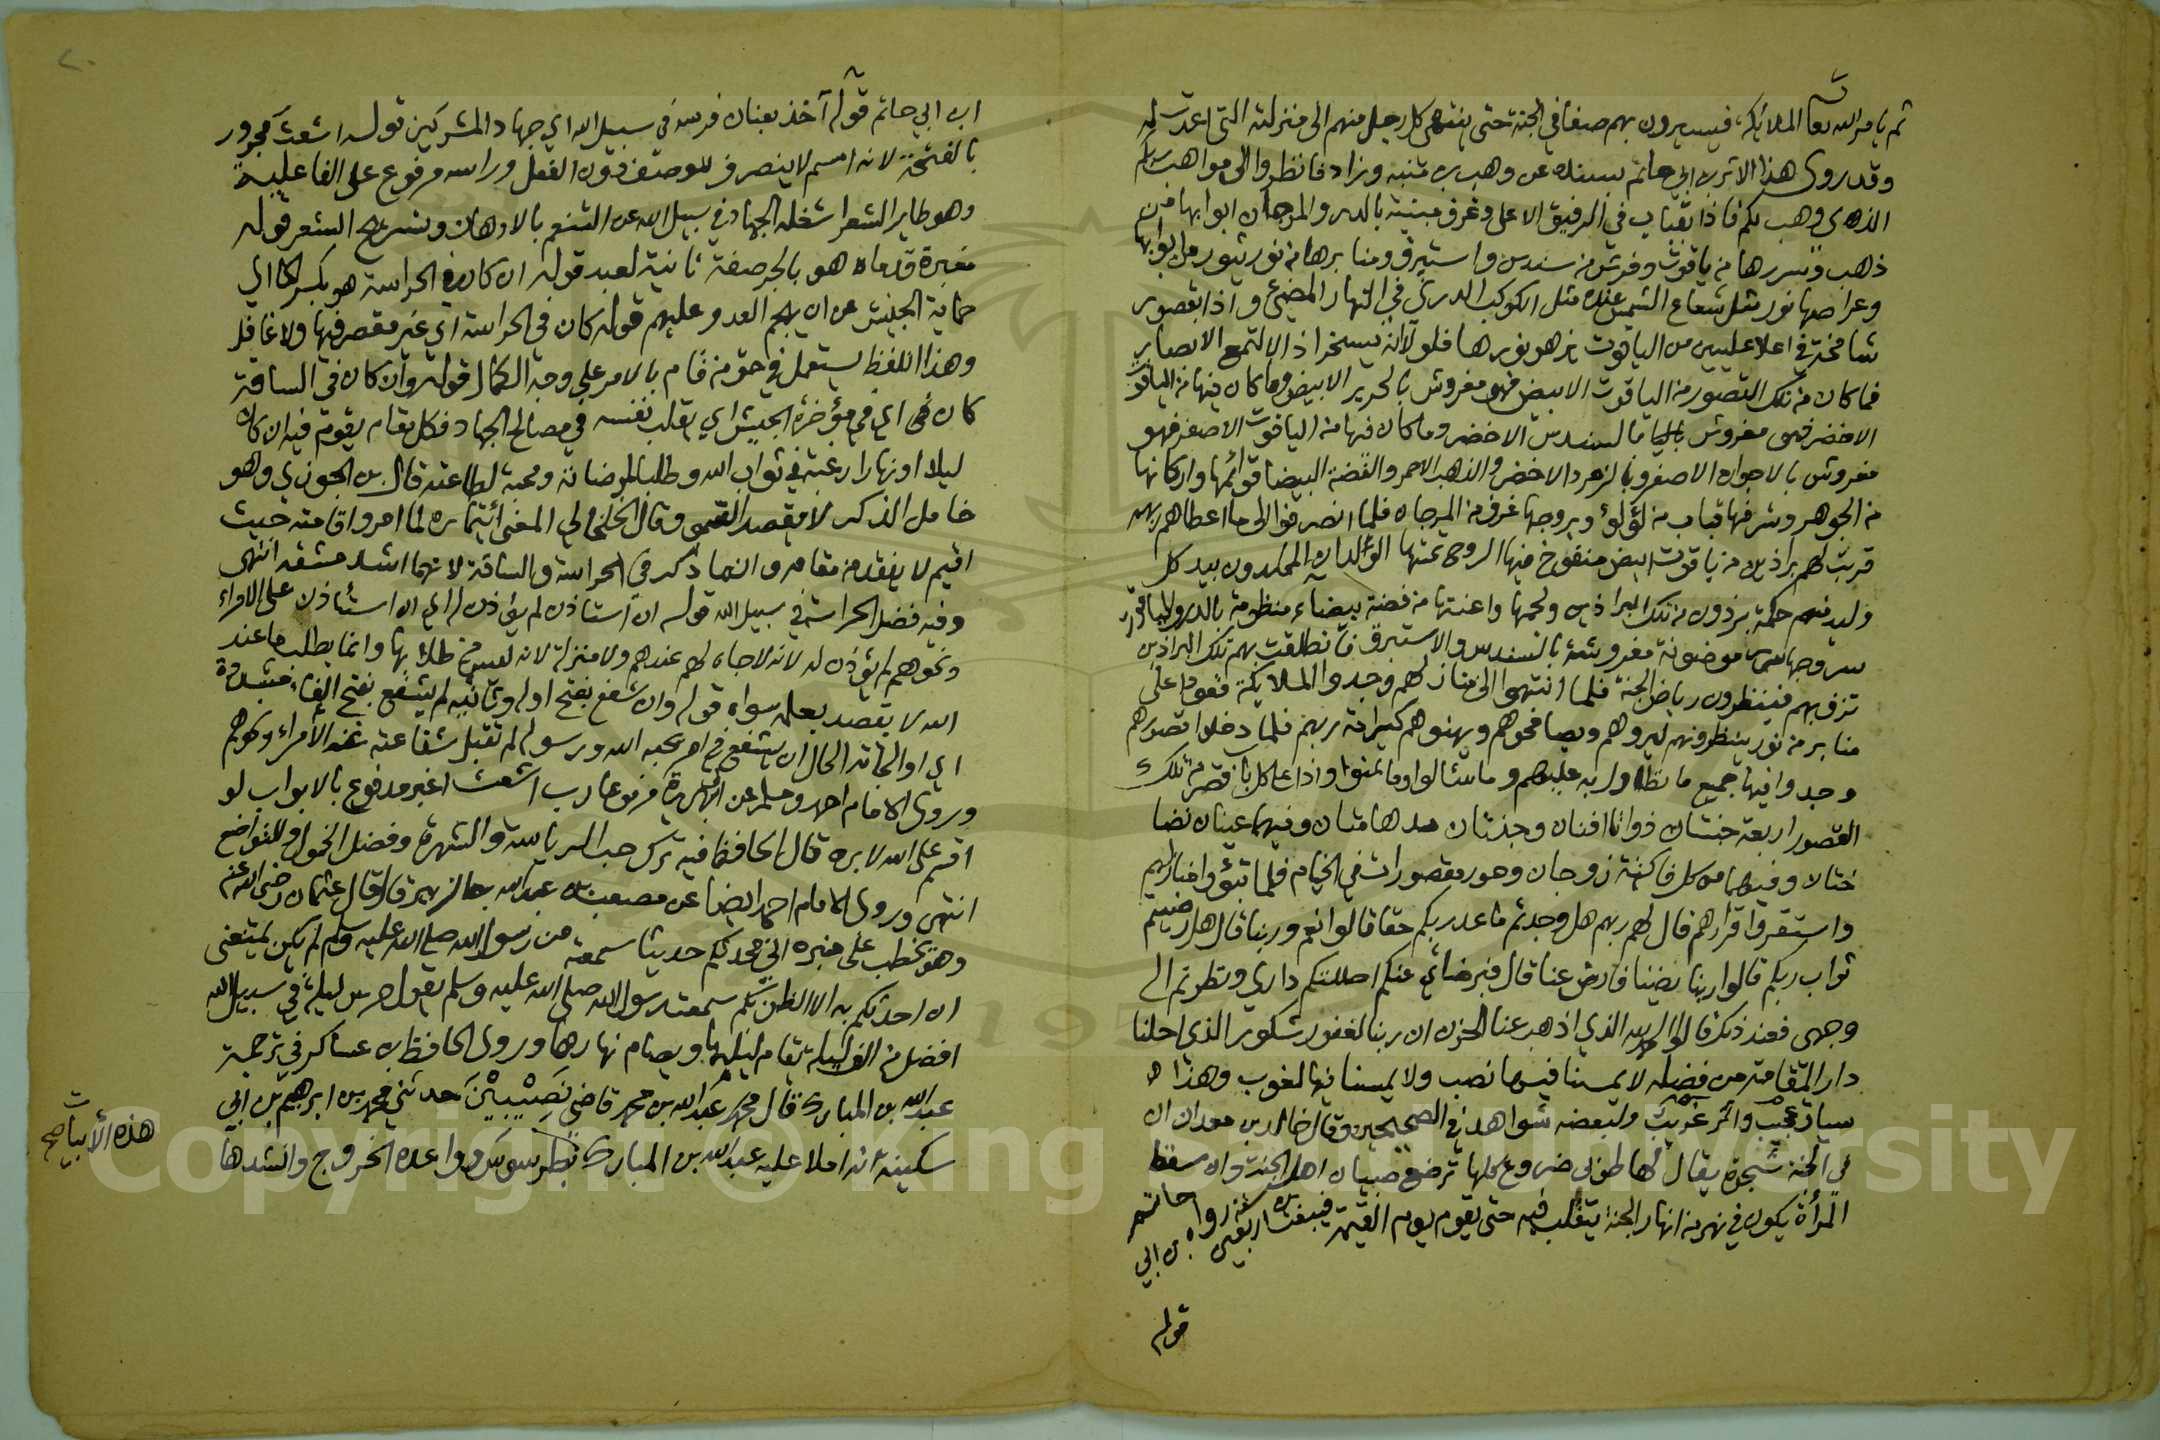 ثم يامر الله تعا الملائكة فيسيرون بهم صفا في الجنة حتى ينتهي كل رجل منهم الى منزلته التى اعدت له
وقد روى هذا الاثر بن ابي حاتم بسنده عن وهب بن منبه وزاد فانظروا الى مواهب ربكم
الذى وهب لكم فاذا بقباب في الرفيق الاعلى وغرف مبنية بالدر والمرجان ابوابها من
ذهب وسررها من ياقوت وفرش من سندس واستبرق ومنابرها من نور يثور من ابوابها
وعراصها نور مثل شعاع الشمس عنده مثل الكوكب الدري في النهار المضئ واذا بقصور
شامخة في اعلا عليين من الياقوت يزهو نورها فلولا انه يسخر اذ الالتمع الابصار
فما كان من تلك القصور من الياقوت الابيض فهو مفروش بالحرير الابيض وما كان فيها من الياقوت
الاخضر فهى مفروش بالسندس الاخضر وما كان فيها من الياقوت الاصفر فهو
مفروش بالارجوان الاصفر وبالزمرد الاخضر والذهب الاحمر والفضة البيضا قوائمها واركانها
من الجوهر وشرفها قباب من لؤلؤ وبروجها غرف من المرجان فلما انصرفوا الى ما اعطاهم ربهم
قربت لهم براذين من ياقوت ابيض منفوخ فيها الروح تجنبها الولدان المخلدون بيد كل
وليد منهم حكمة برذون من تلك البراذين ولجمها واعنتها من فضة بيضاء منظومة بالدر والياقوت
سروجها موضونة مفروشة بالسندس والاستبرق فانطلقت بهم تلك البراذين
تزف بهم فينظرون رياض الجنة فلما انتهوا الى منازلهم وجدوا الملايكة قعودا على
منابر من نور ينتظرونهم ليزوهم ويصافحوهم ويهنوهم كرامة ربهم فلما دخلوا قصورهم
وجدوا فيها جميع ما تطاول به عليهم وما سئالوا وما تمنوا واذا على كل باب قصر من تلك
القصور اربعة جنتان ذواتا افنان وجنتان مدهامتان وفيهما عينان نضا
ختان وفيهما من كل فاكهة زوجان وحور مقصورات في الخيام فلما تبوؤا منازلهم
واستقروا قرارهم قال لهم ربهم هل وجدتم ما وعد ربكم حقا قالوا نعم وربنا قال هل رضيتم
ثواب ربكم قالوا ربنا رضينا فارض عنا قال فبرضاي عنكم احللتكم داري ونظرتم الى
وجهى فعند ذلك قالوا الحمد لله الذي اذهب عنا الحزن ان ربنا لغفور شكور الذي احلنا
دار المقامة من فضله لا يمسنا فيها نصب ولا يمسنا فيها لغوب وهذا
سياق عجيب واثر غريب ولبعضه شواهد في الصحيحين وقال خالد بن معدان ان
في الجنة شجرة يقال لها طوبى ضروع كلها ترضع صبيان اهل الجنة وان سقط
المرأة يكون في نهر من انهار الجنة يتقلب فيه حتى تقوم يوم القيمة فيبعث بن اربعين سنة رواه بن ابي حاتم
قوله
ابن ابي حاتم قوله آخذ بعنان فرسه في سبيل الله اي جهاد المشركين قوله اشعث مجرور
بالفتحة لانه اسم لا ينصرف للوصف وزن الفعل وراسه مرفوع على الفاعلية
وهو طاير الشعر اشغله الجهاد في سبيل الله عن التنعم بالادهان وتسريح الشعر قوله
مغبرة قدماه هو بالجر صفة ثانية لعبد قوله ان كان في الحراسة هو بكسر الحا اي
حماية الجيش عن ان يهجم العدو عليهم قوله كان في الحراسة اي غير مقصر فيها ولا غافل
وهذا اللفظ يستعمل في حق من قام بالامر على وجه الكمال قوله وان كان في الساقة
كان في اي في مؤخرة الجيش اي يقلب نفسه في مصالح الجهاد فكل مقام يقوم فيه ان كان
ليلا او نهارا رغبة في ثواب الله وطلبا لمرضاته ومحبة لطاعته قال بن الجوزي وهو
خامل الذكر لا يقصد السمو وقال الخلخالي المعنى ائتماره لما امر واقامته حيث
اقيم لا يفقد من مقامه وانما ذكر في الحراسة والساقة لانهما اشد مشقة انتهى
وفيه فضل الحراسة في سبيل الله قوله ان استاذن لم يؤذن له اي ان استأذن على الامراء
ونحوهم لم يؤذن له لانه لا جاه له عندهم ولا منزلة لانه ليس من طلابها وانما يطلب ما عند
الله لا يقصد بعمله سواه قوله وان شفع بفتح اوله وثانيه لم يشفع بفتح الفاء مشددة
اي لو الجاته الحال ان يشفع في امر يحبه الله ورسوله لم تقبل شفاعته عند الأمراء ونحوهم
وروى الامام احمد ومسلم عن ابي هريرة مرفوعا رب اشعث اغبر مدفوع بالابواب لو
اقسم على الله لابره قال الحافظ فيه ترك حب الرياسة والشهرة وفضل الخمول والتواضع
انتهى وروى الامام احمد ايضا عن مصعب بن عبد الله بن الزبير قال قال عثمان رضى الله عنه
وهو يخطب على منبره اني محدثكم حديثا سمعته من رسول الله صلى الله عليه وسلم لم يكن يمنعنى
ان احدثكم به الا الظن بكم سمعت رسول الله صلى الله عليه وسلم يقول حرس ليلة في سبيل الله
افضل من الف ليلة يقام ليلها ويصام نهارها وروى الحافظ بن عساكر في ترجمة
عبد الله بن المبارك قال محمد بن عبد الله بن محمد قاضي نَصِيْبِيْنَ حدثني محمد بن ابرهيم بن ابي
سكينة انه املا عليه عبد الله بن المبارك بطرسوس وواعده الخروج وانشدها
هذه الأبيات صح
Copyright © King Saud University